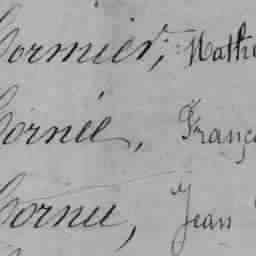 Cormier, Math
Cornée, Franç
Cornu, Jean